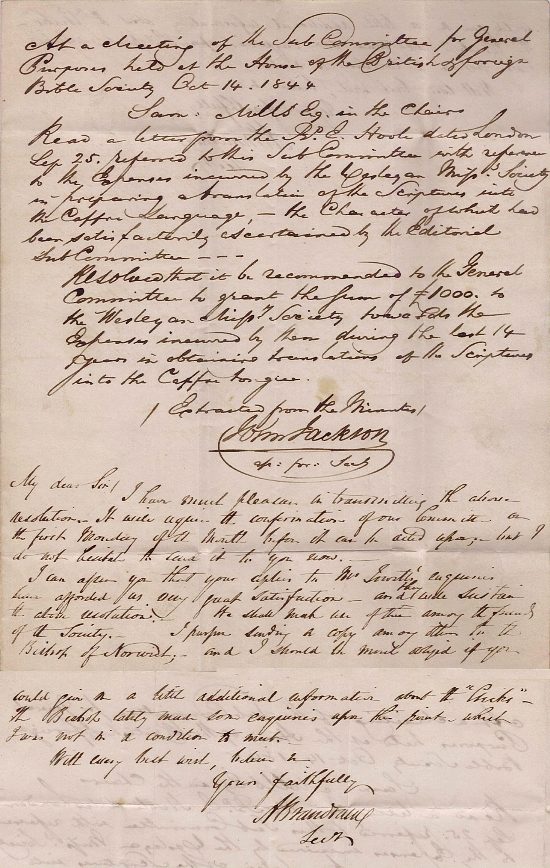 At a Meeting of the Sub Committee for General
Purposes held at the House of the British & foreign
Bible Society Oct 14. 1844
Sam: Mills Esq. in the Chair
Read a letter from the Revd. E Hoole dated London
Sep 25. referred to this Sub Committee with reference
to the Expenses incurred by the Wesleyan Missy. Society
in preparing a translation of the Scriptures into
the Caffre Language, – the Character of which had
been satisfactorily ascertained by the Editorial
Sub Committee – – –
Resolved that it be recommended to the General
Committee to grant the sum of £1000. to
the Wesleyan Missy Society towards the
Expenses incurred by them during the last 14
years in obtaining translations of the Scriptures
into the Caffre tongue.
/ Extracted from the Minutes /
John Jackson
for: Secy
My dear Sir/
I have much pleasure in transmitting the above
resolution. It will require the confirmation of our Committee on
the first Monday of the Month before it can be acted upon, but I
do not hesitate to send it to you now. –
I can assure you that your replies to Mr enquiries
have afforded us very great satisfaction – and they will sustain
the above resolution. – We shall make use of them among the friends
of the Society. – I purpose sending a copy among them to the
Bishop of Norwich, – and I should be much obliged if you
could give me a little additional information about the " " –
The Bishop lately made some enquiries upon this point – which
I was not in a condition to meet. –
With every best wish, believe me
Yours faithfully
A Brandram
Secy